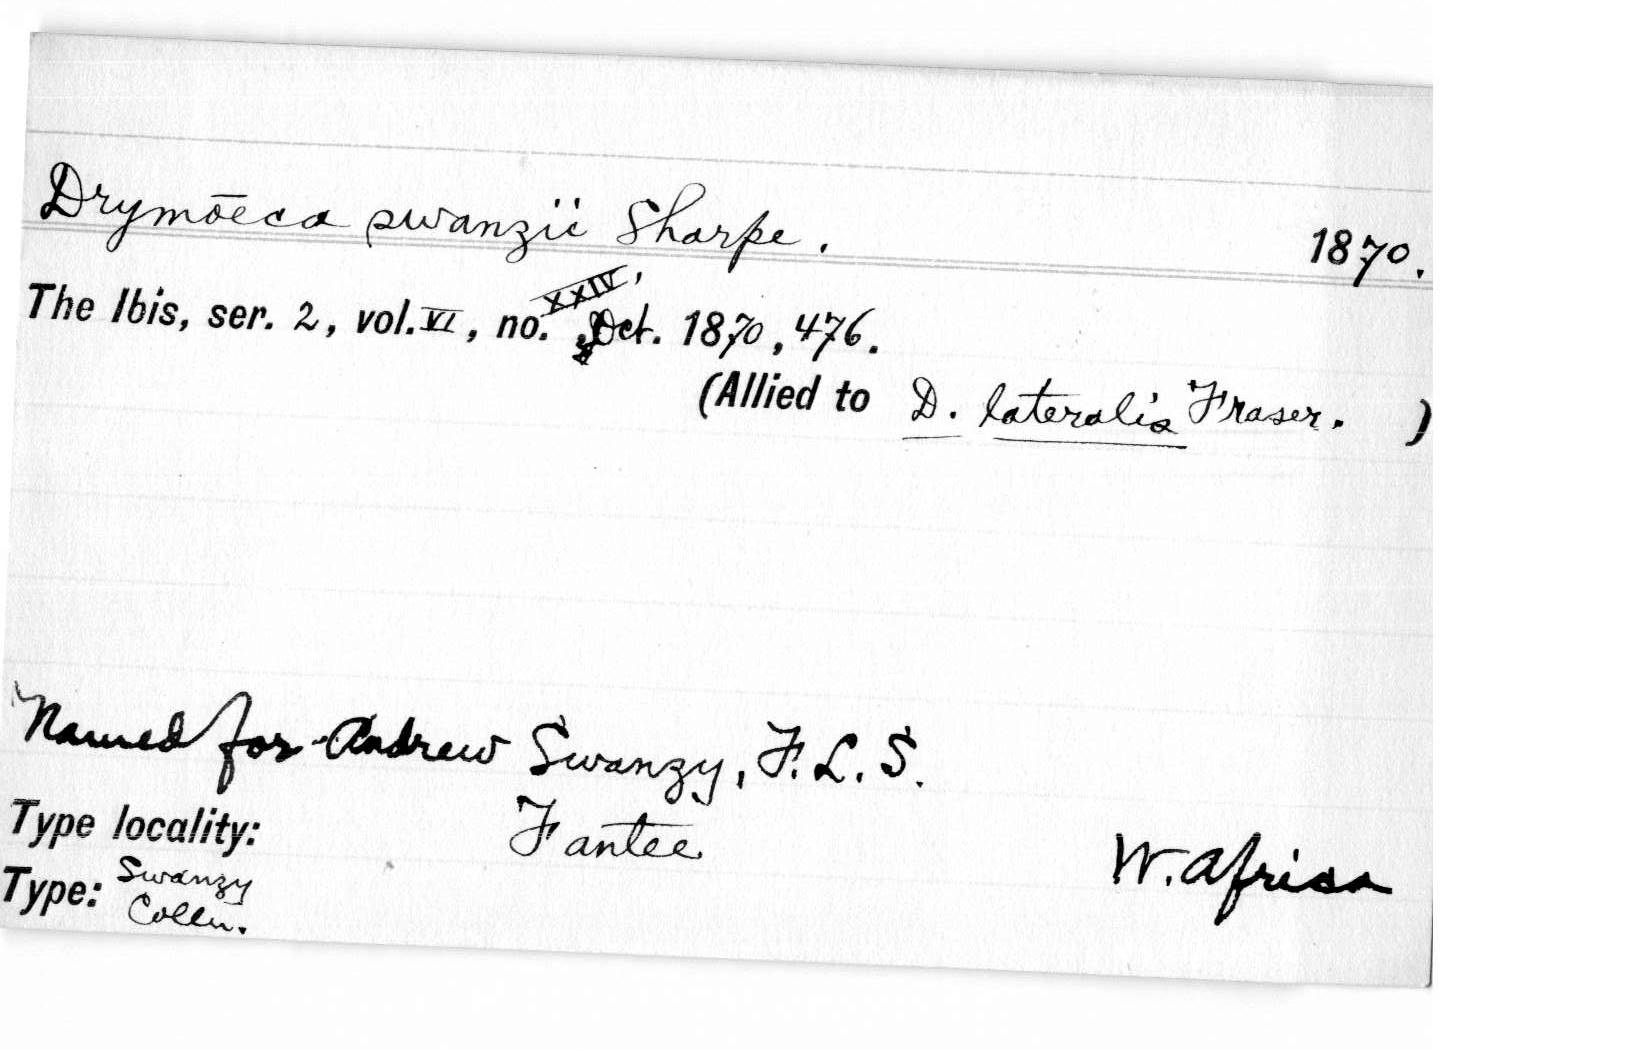 Drymōeca swanzii Sharpe. 1870.
The Ibis, ser. 2, vol. VI, no. XXIV, Oct. 1870, 476.
(Allied to D. lateralis Fraser. )
Named for Andrew Swanzy, F. L. S.
Type locality: Fantee W. Africa
Type: Swanzy
Colln.